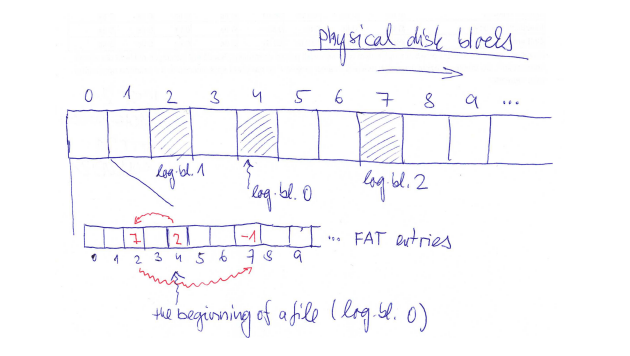 physical disk blocks
0 1 2 3 4 5 6 7 8 9 ...
log. bl. 1
log. bl. 0
log. bl. 2
7 2 -1
... FAT entries
0 1 2 3 4 5 6 7 8 9
the beginning of a file (log. bl. 0)